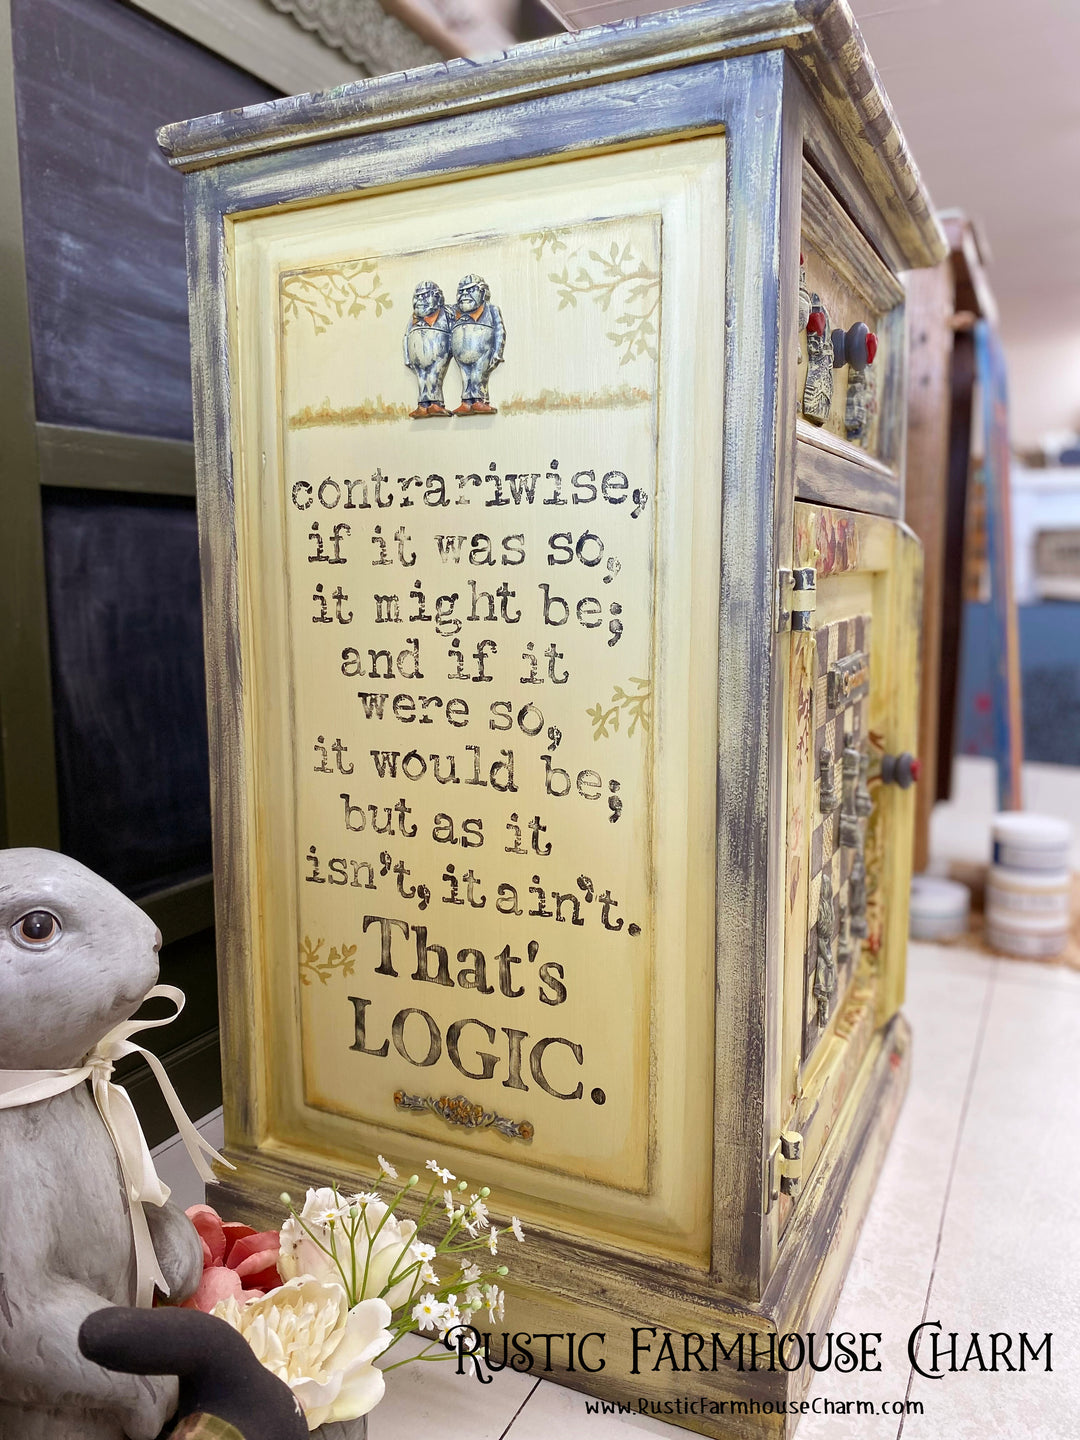 contrariwise,
if it was so,
it might be;
and if it
were so,
it would be;
but as it
isn't, it ain't.
That's
LOGIC.
Rustic Farmhouse Charm
www.RusticFarmhouseCharm.com